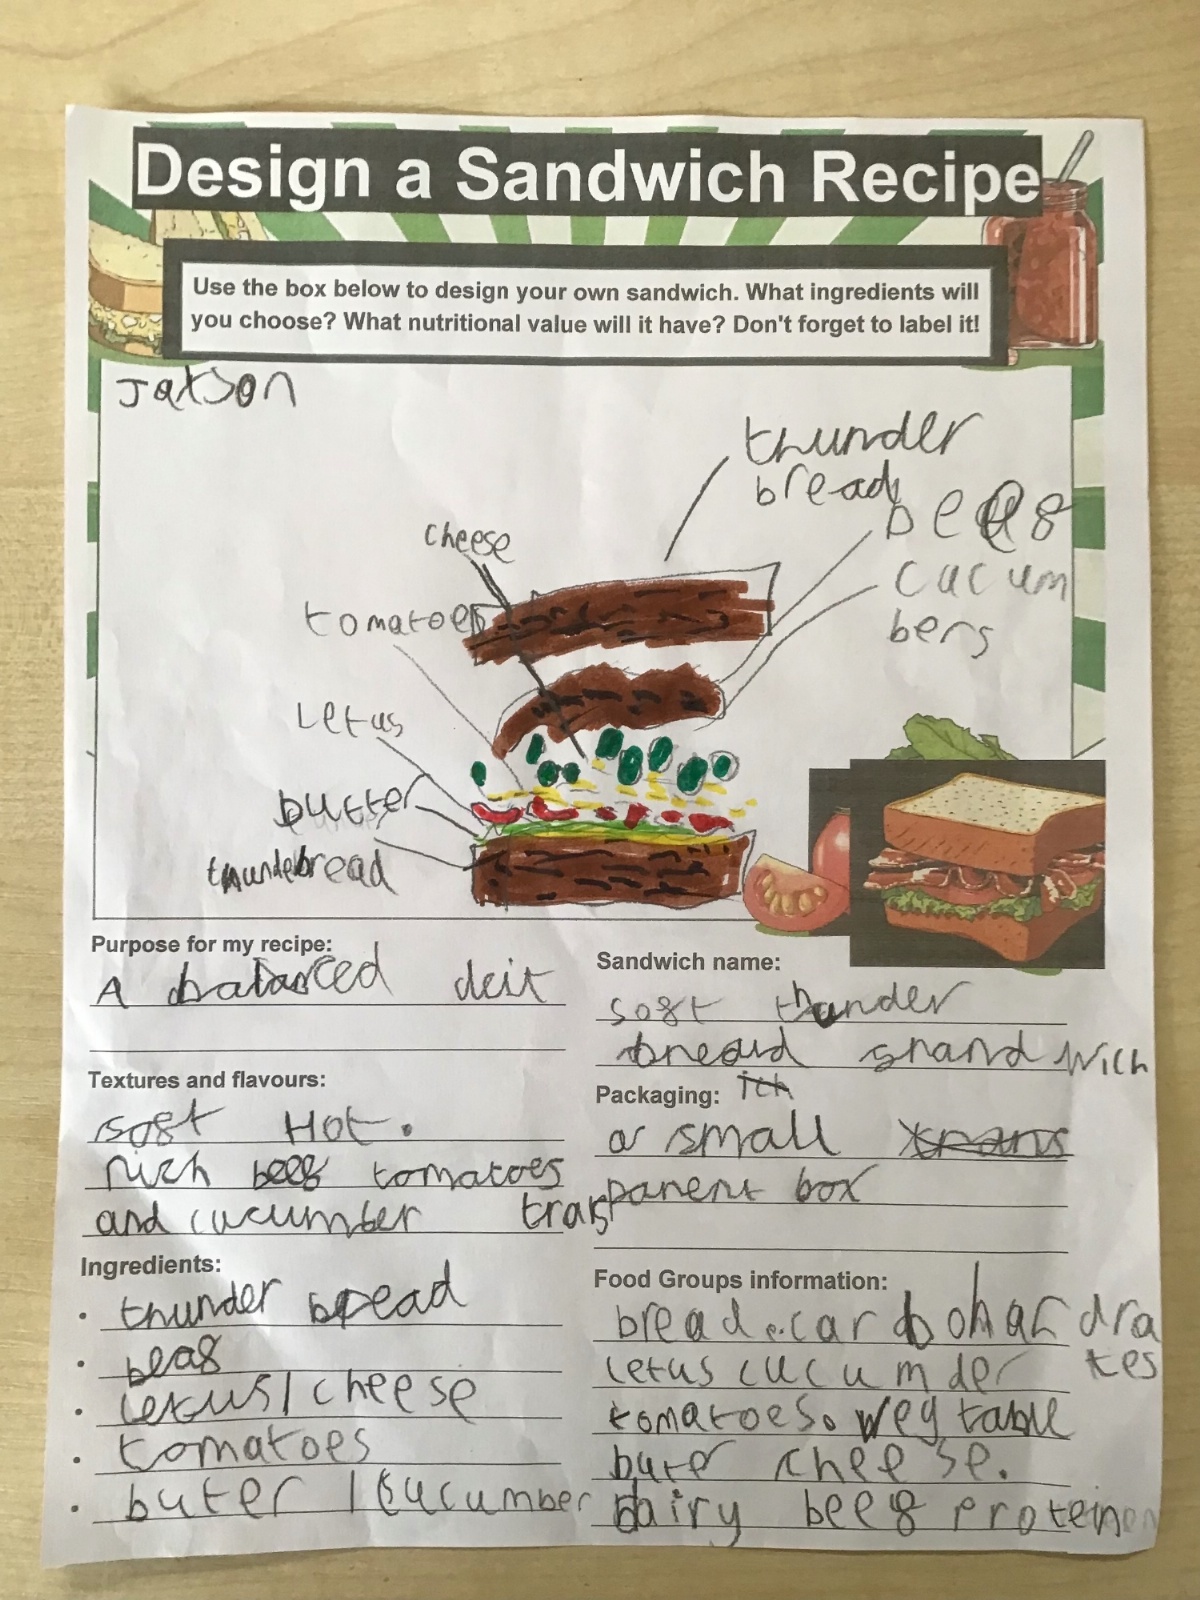 Design a Sandwich Recipe
Use the box below to design your own sandwich. What ingredients will
you choose? What nutritional value will it have? Don't forget to label it!
Jatson
thunder
bread
beef
cucum
bers
cheese
tomatoes
Letus
butter
thunderbread
Purpose for my recipe:
A balanced deit
Sandwich name:
soft thunder
bread snandwich
Textures and flavours:
soft Hot.
rich beef tomatoes
and cucumber
Packaging:
a small trans
parent box
Ingredients:
• thunder bread
• beaf
• letus/cheese
• tomatoes
• buter / cucumber
Food Groups information:
bread. carbohardra
tes
letus cucumder
tomatoes. vegtable
buter cheese.
dairy beef protein